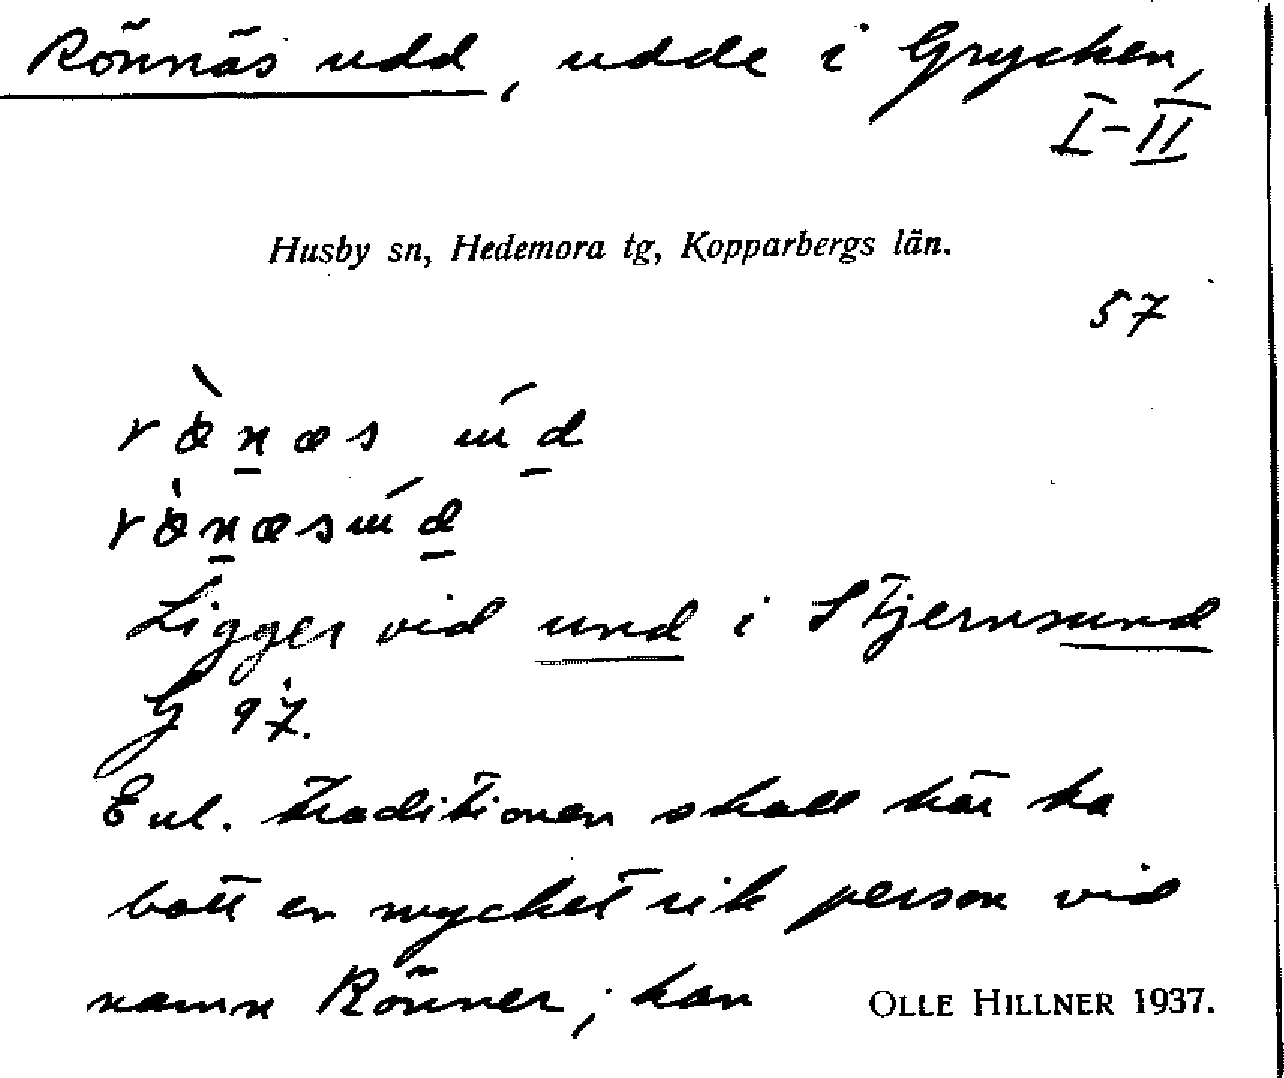 Rönnäs udd, udde i Grycken,
I-II
Husby sn, Hedemora tg, Kopparbergs län.
57
Ligger vid und i Stjernsund
G 97.
Enl. traditionen skall här ha
bott en mycket rik person vid
namn Rönner; han
OLLE HILLNER 1937.